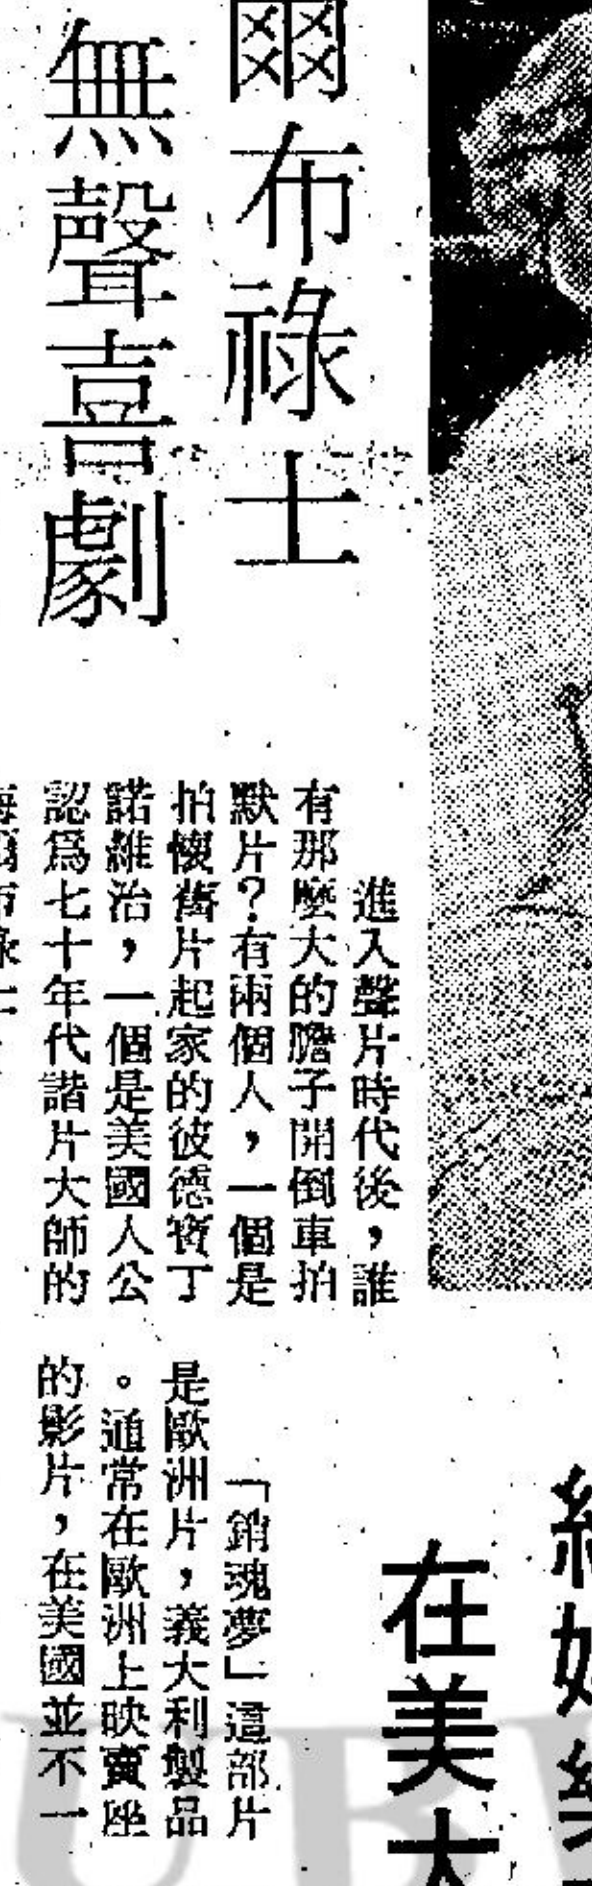 爾布祿士
無聲喜劇
進入聲片時代後，誰
有那麼大的膽子開倒車拍
默片？有兩個人，一個是
拍懷舊片起家的彼德寶丁
諾維治，一個是美國人公
認爲七十年代諧片大師的
在美
「銷魂夢」這部片
是歐洲片，義大利製品
。通常在歐洲上映賣座
的影片，在美國並不一